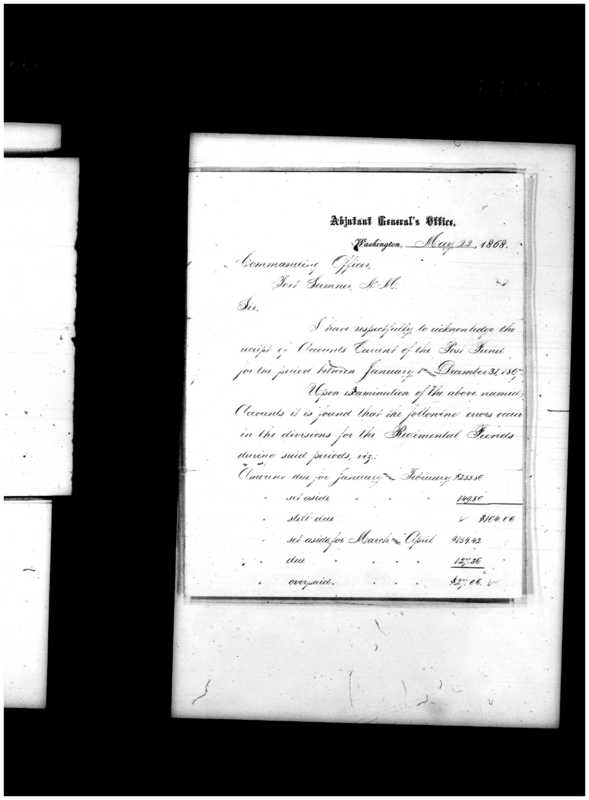 Adjutant General's Office,
Washington, May 22, 1868.
Commanding Officer,
Fort Sumner, N. M.
Sir,
I have respectfully to acknowledge the
receipt of Accounts Current of the Post Fund
for the period between January 1 and December 31, 1867.
Upon examination of the above named
Accounts it is found that the following errors occur
in the divisions for the Regimental Funds
during said periods, viz:
Amount due for January and February
" set aside " " "
" still due
" set aside for March and April
" due " " "
" overpaid. " " "